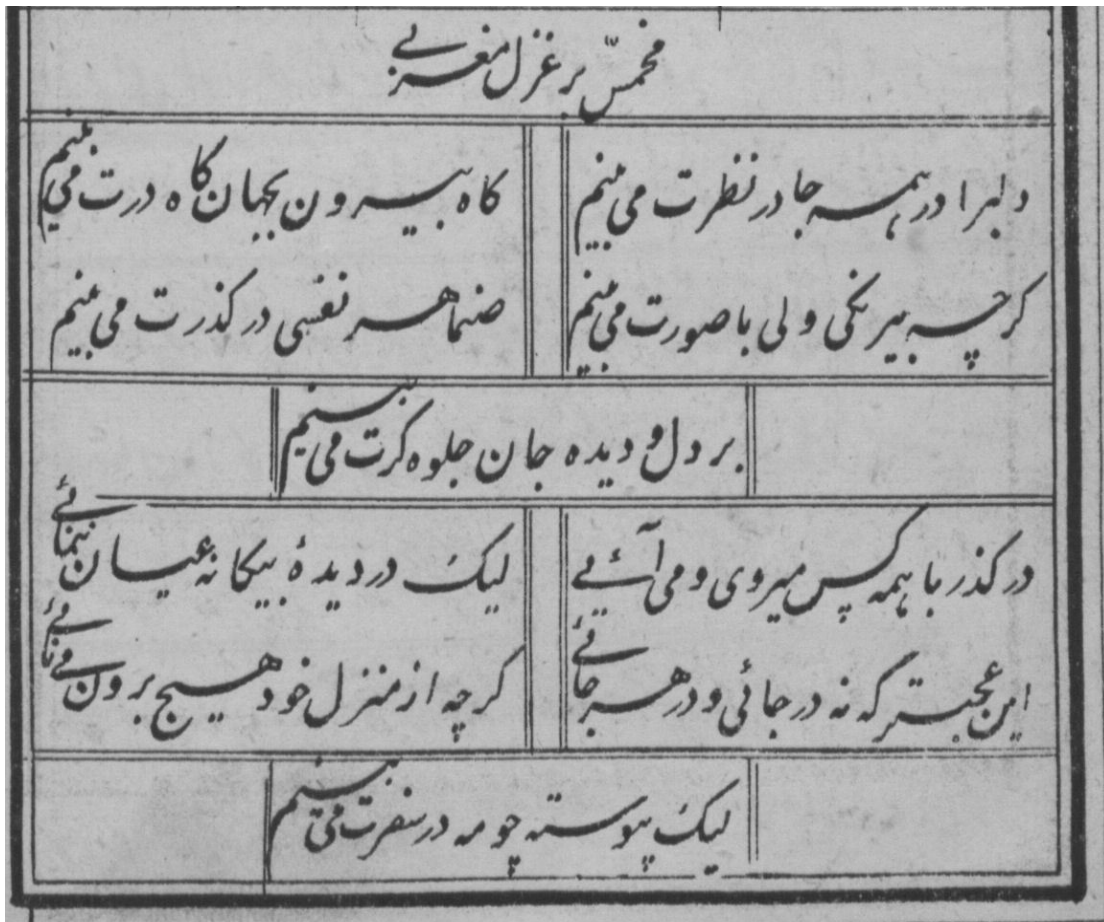 مخمسّ بر غزل مغربی
دلبرا در همه جا در نظرت می بینم
کاه بیرون بجهان کاه درت می بینم
کرچه بیرنکی ولی با صورت می بینم
صنما هر نفسی در کذرت می بینم
بر دل و دیده جان جلوه کرت می بینم
در کذر با همه کس میروی و می آئی
لیک در دیدهٔ بیکانه عیان ننمائی
این عجبتر که نه در جائی و در هر جائی
کرچه از منزل خود هیچ برون می نائی
لیک پیوسته چو مه در سفرت می بینم